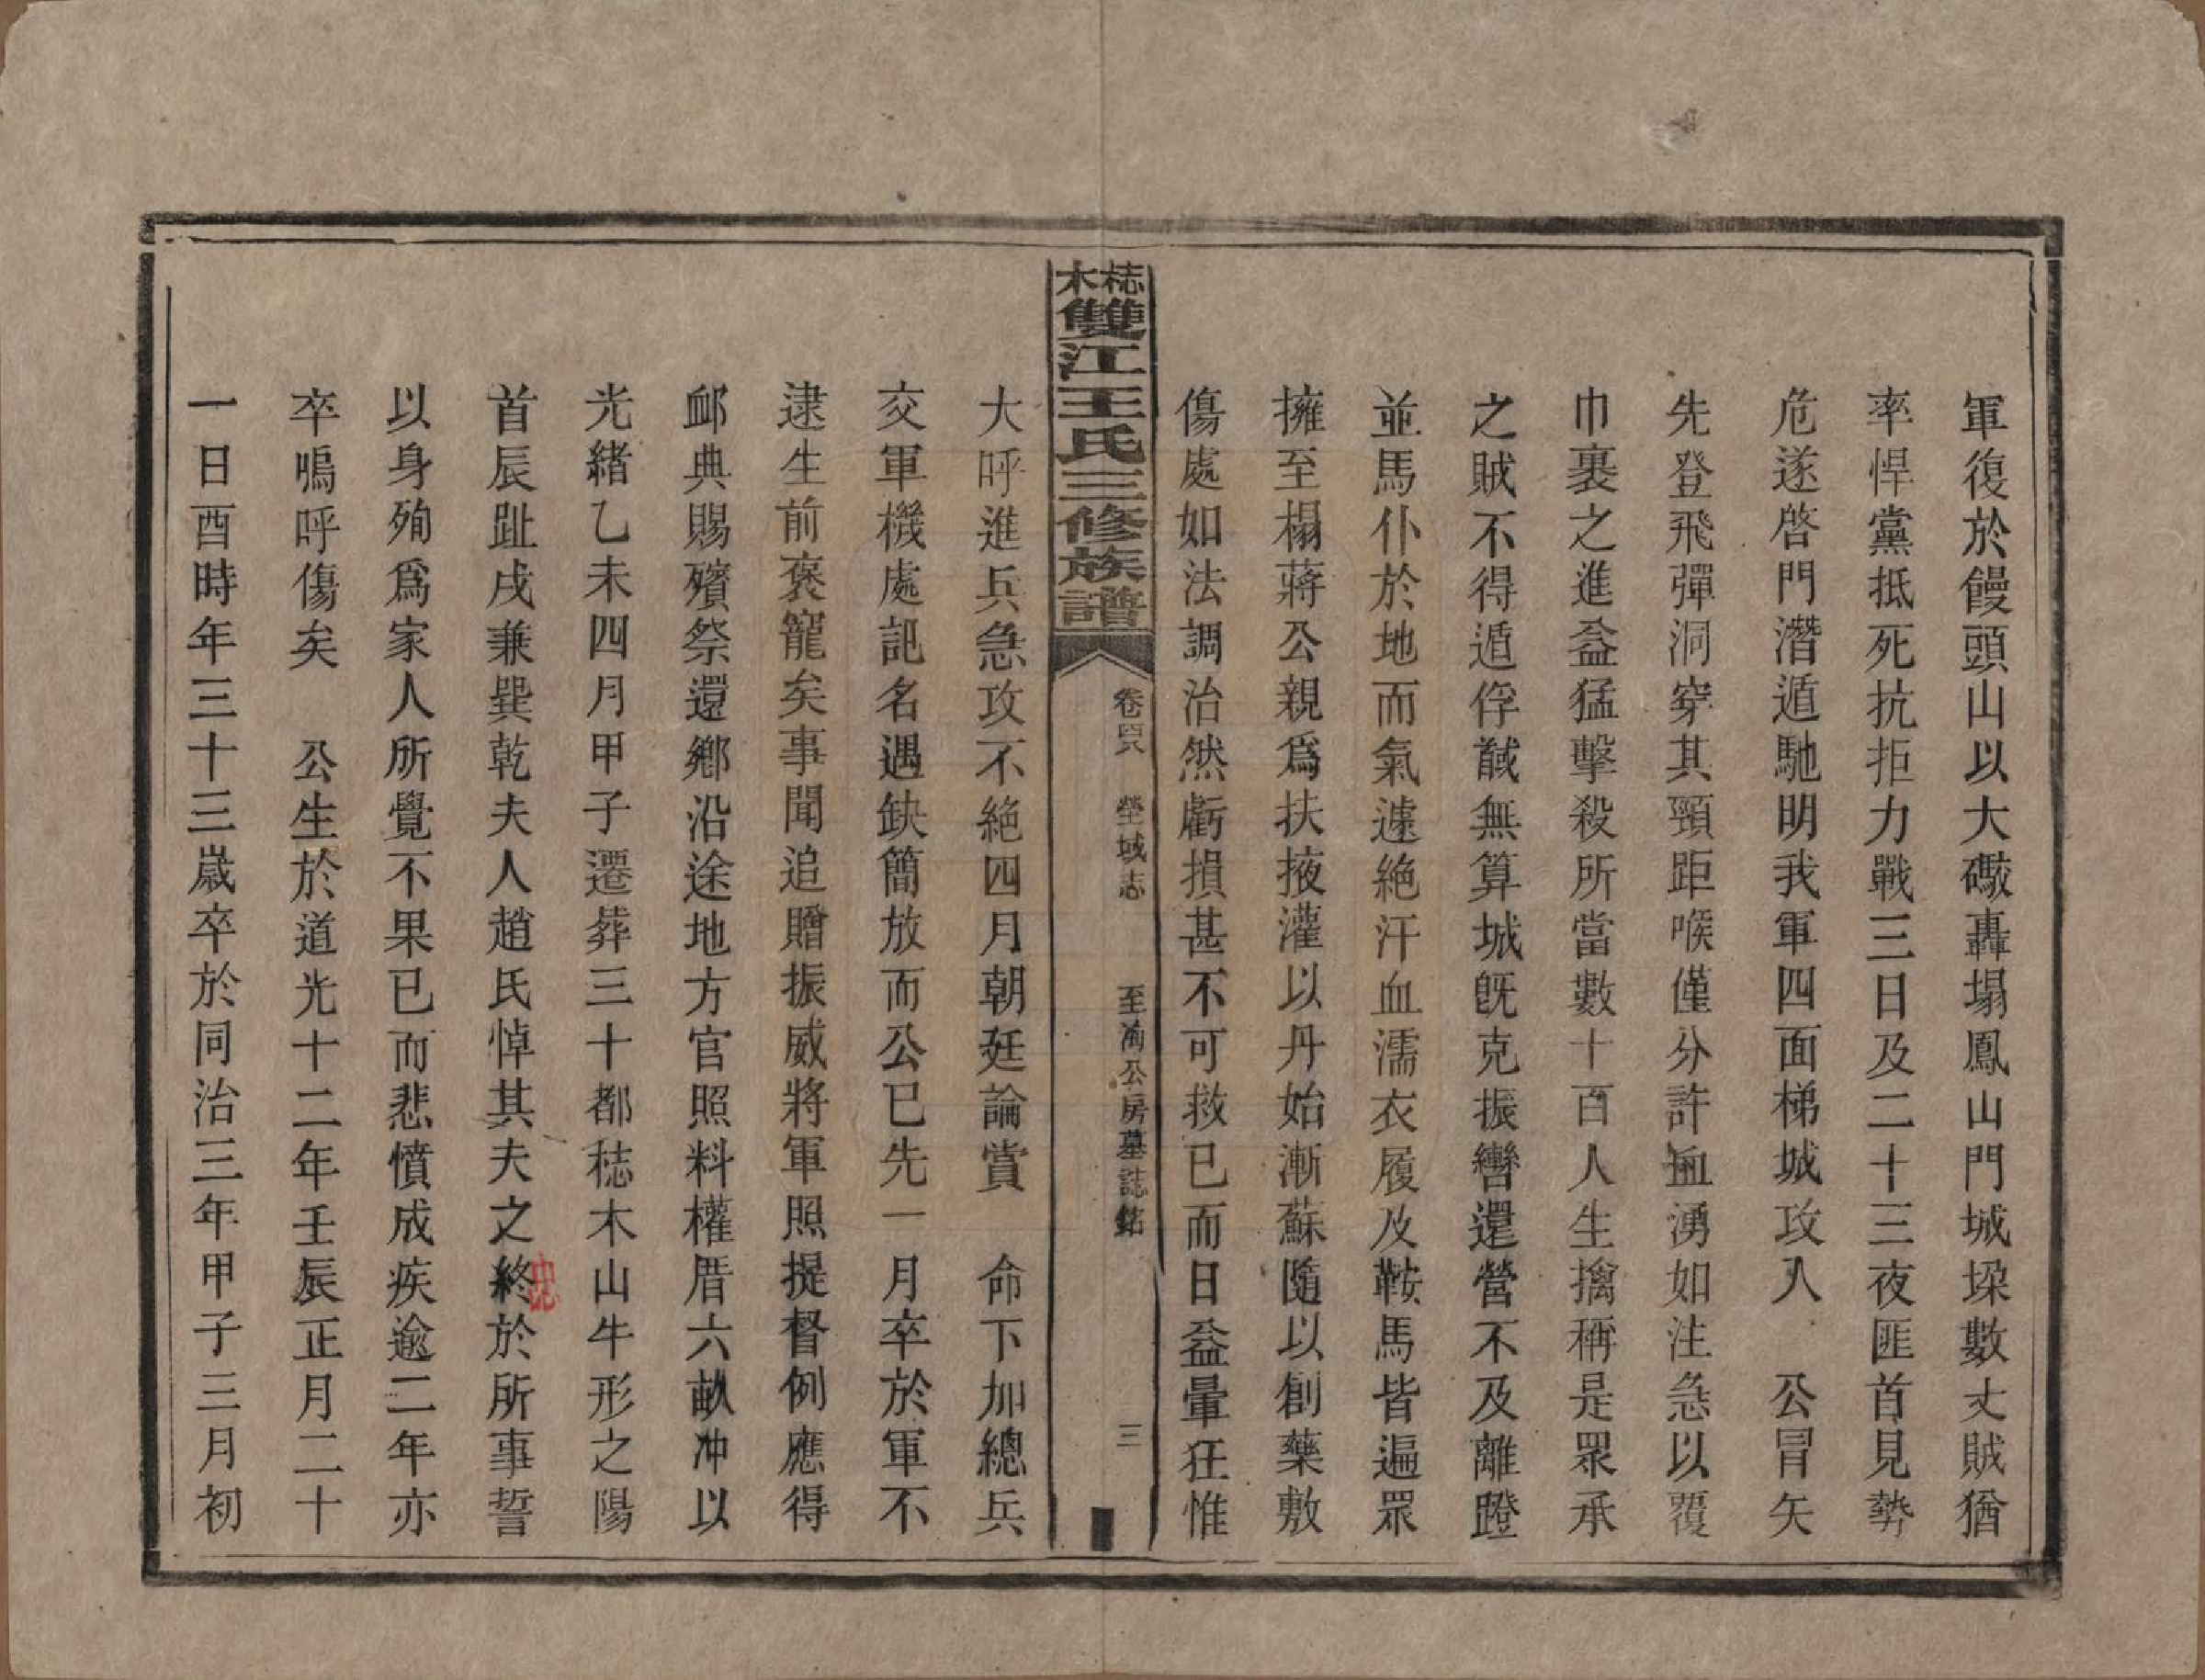 軍復於饅頭山以大礮轟塌鳳山門城垜數丈賊猶
率悍黨抵死抗拒力戰三日及二十三夜匪首見勢
危遂啓門潛遁馳明我軍四面梯城攻入　公冒矢
先登飛彈洞穿其頸距喉僅分許血湧如注急以覆
巾裹之進益猛擊殺所當數十百人生擒稱是眾承
之賊不得遁俘馘無算城旣克振轡還營不及離蹬
並馬仆於地而氣遽絕汗血濡衣履及鞍馬皆遍眾
擁至榻蔣公親爲扶掖灌以丹始漸蘇隨以創藥敷
傷處如法調治然虧損甚不可救已而日益暈狂惟
梽木雙江王氏三修族譜
卷四八　塋域志　至渝公房墓誌銘　三
大呼進兵急攻不絕四月朝廷論賞　命下加總兵
交軍機處記名遇缺簡放而公已先一月卒於軍不
逮生前褒寵矣事聞追贈振威將軍照提督例應得
卹典賜殯祭還鄉沿途地方官照料權厝六畝冲以
光緒乙未四月甲子遷葬三十都梽木山牛形之陽
首辰趾戌兼巽乾夫人趙氏悼其夫之終於所事誓
以身殉爲家人所覺不果已而悲憤成疾逾二年亦
卒嗚呼傷矣　公生於道光十二年壬辰正月二十
一日酉時年三十三歲卒於同治三年甲子三月初